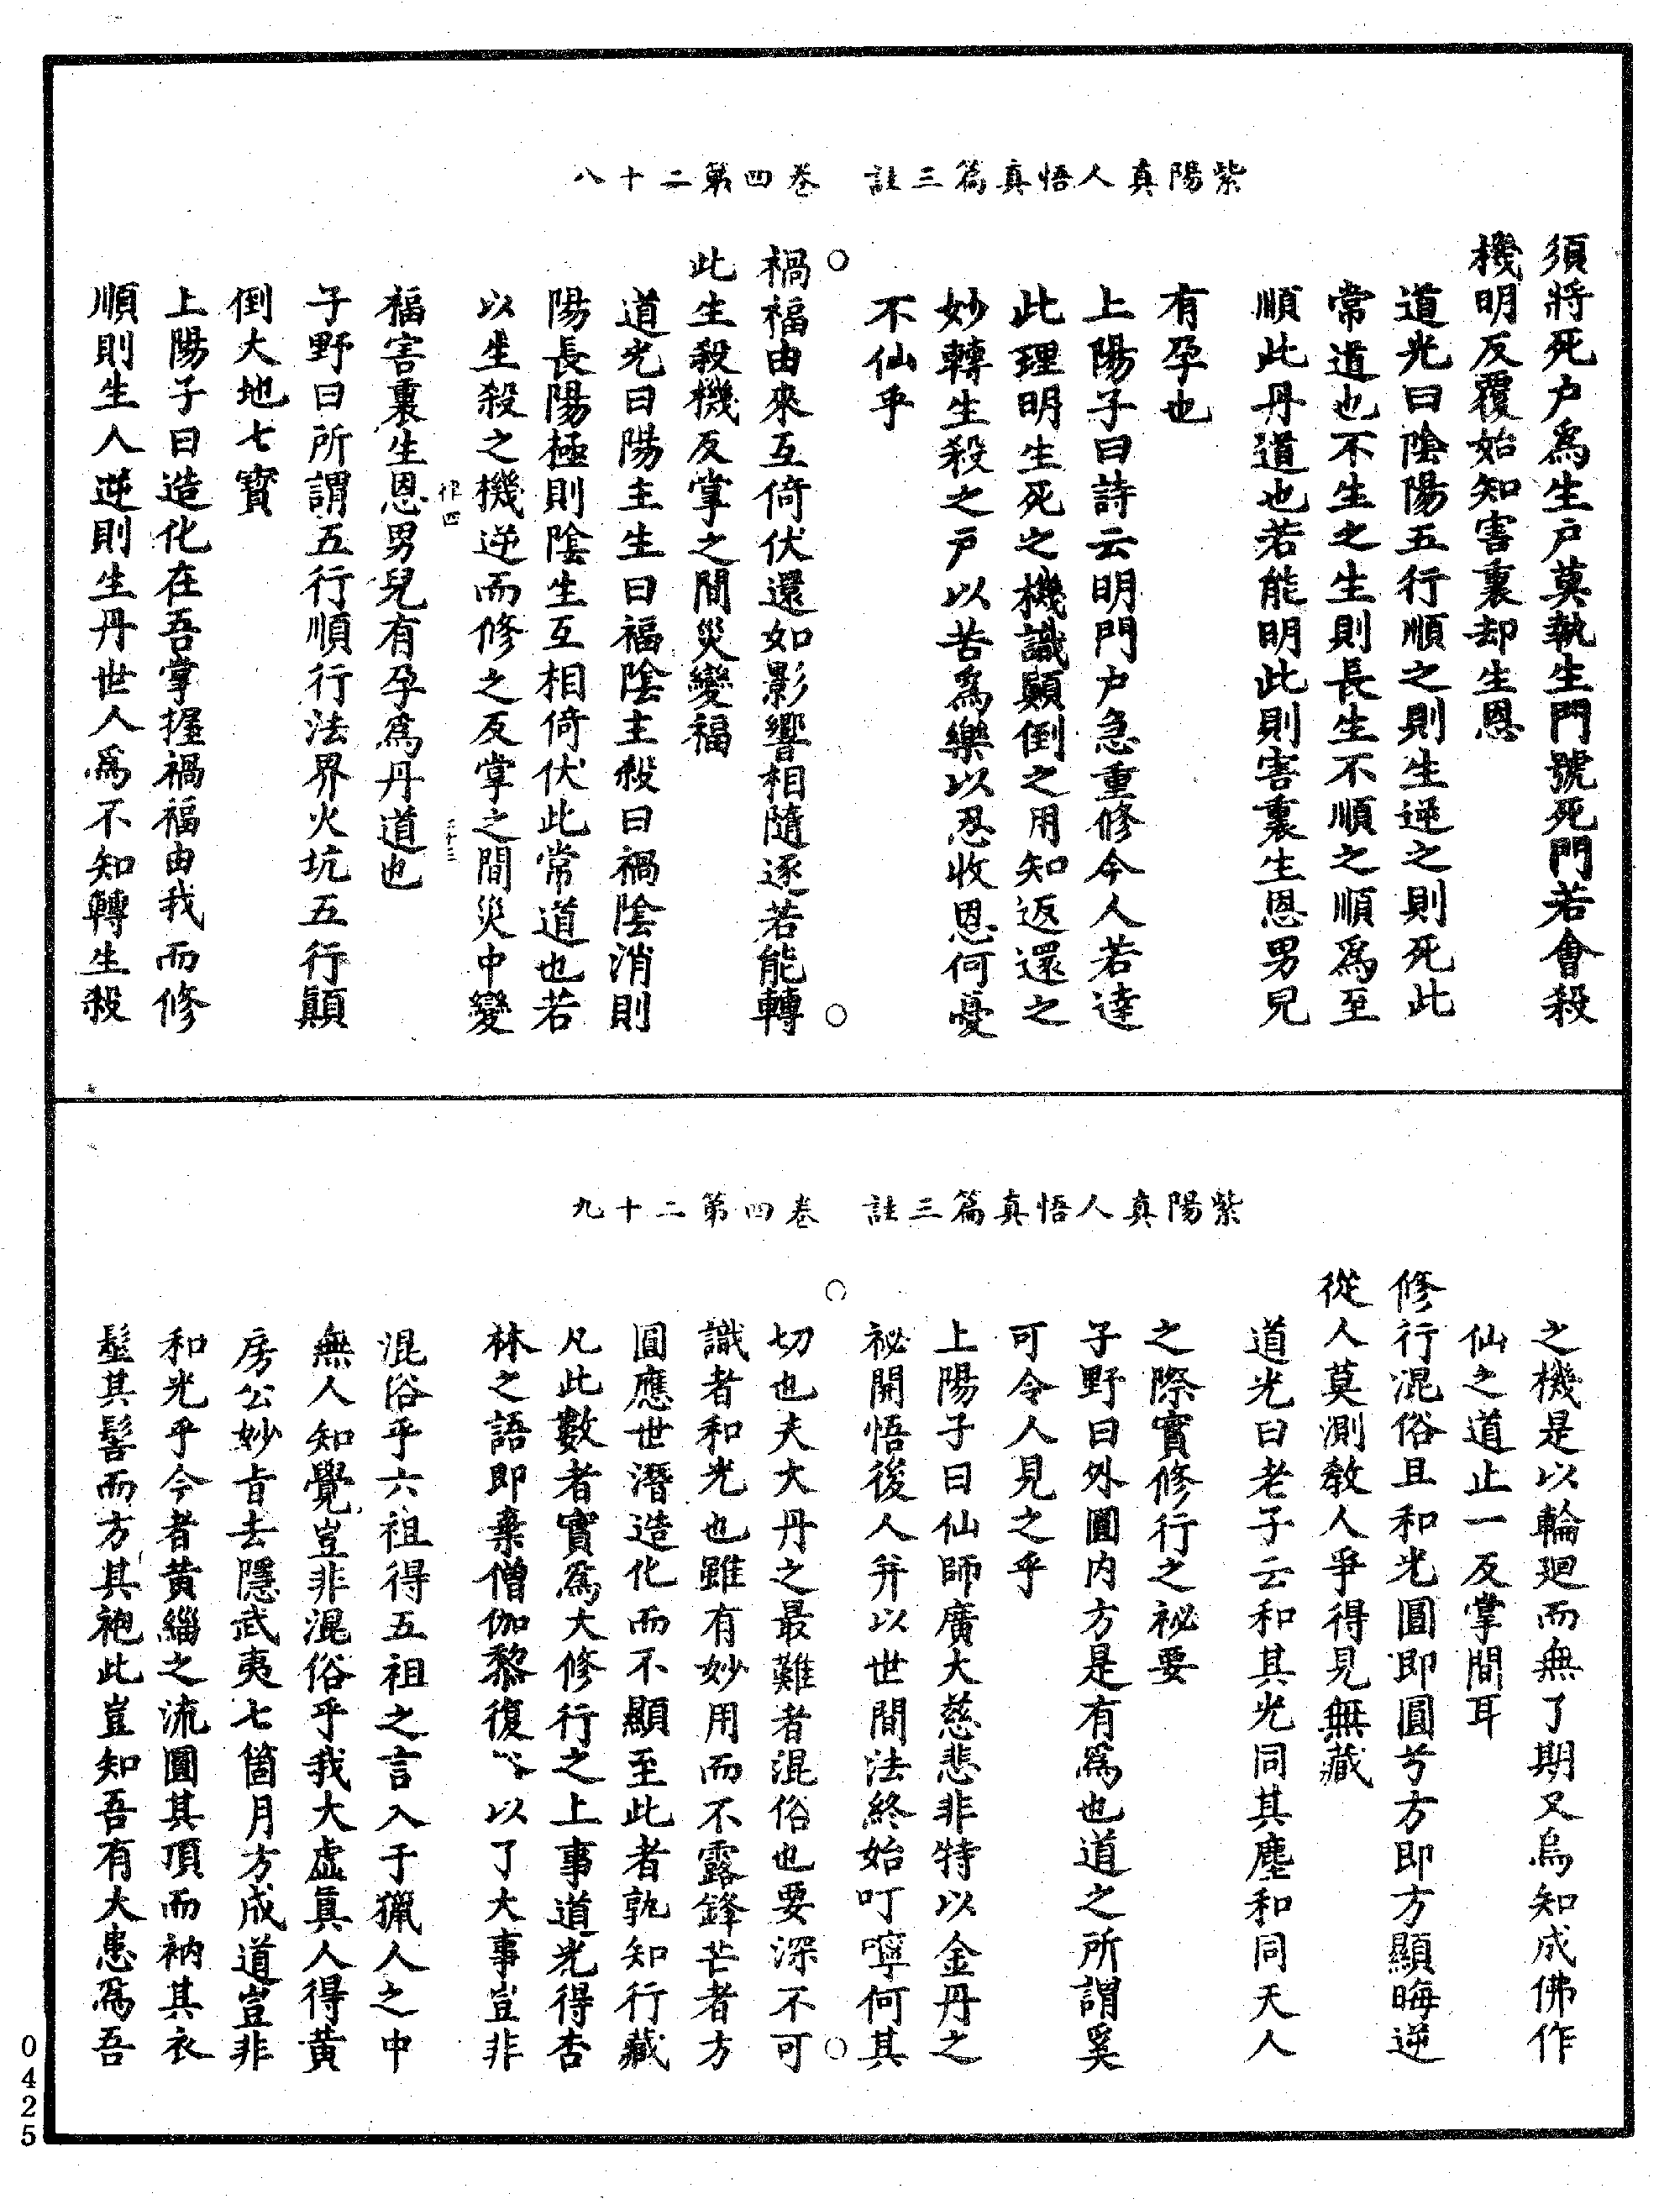 紫陽真人悟真篇三註　卷四第二十八
須將死户爲生户莫執生門號死門若會殺
機明反覆始知害裏却生恩
道光曰陰陽五行順之則生逆之則死此
常道也不生之生則長生不順之順爲至
順此丹道也若能明此則害裏生恩男兒
有孕也
上陽子曰詩云明門户急重修今人若達
此理明生死之機識顛倒之用知返還之
妙轉生殺之戸以苦爲樂以忍收恩何憂
不仙乎
禍福由來互倚伏還如影響相隨逐若能轉
此生殺機反掌之間災變福
道光曰陽主生曰福陰主殺曰禍陰消則
陽長陽極則陰生互相倚伏此常道也若
以生殺之機逆而修之反掌之間災中變
作四
福害裏生恩男兒有孕爲丹道也
子野曰所謂五行順行法界火坑五行顛
倒大地七寳
上陽子曰造化在吾掌握禍福由我而修
順則生人逆則生丹世人爲不知轉生殺
紫陽真人悟真篇三註　卷四第二十九
之機是以輪廻而無了期又烏知成佛作
仙之道止一反掌間耳
修行混俗且和光圓即圓兮方即方顯晦逆
從人莫測教人爭得見無藏
道光曰老子云和其光同其塵和同天人
之際實修行之祕要
子野曰外圓内方是有爲也道之所謂奚
可令人見之乎
上陽子曰仙師廣大慈悲非特以金丹之
祕開悟後人并以世間法終始叮嚀何其
切也夫大丹之最難者混俗也要深不可
識者和光也雖有妙用而不露鋒芒者方
圓應世潛造化而不顯至此者孰知行藏
凡此數者實爲大修行之上事道光得杏
林之語即棄僧伽黎復〻以了大事豈非
混俗乎六祖得五祖之言入于獵人之中
無人知覺豈非混俗乎我大虛真人得黃
房公妙旨去隱武夷七箇月方成道豈非
和光乎今者黃緇之流圓其頂而衲其衣
髽其髻而方其袍此豈知吾有大患爲吾
0425